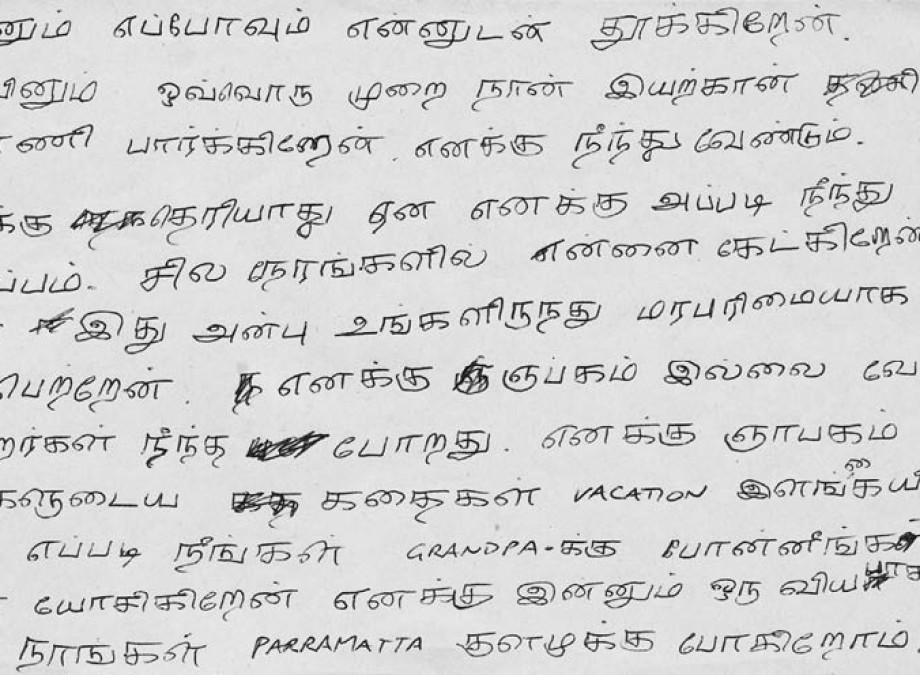 னும் எப்போவும் என்னுடன் தூக்கிறேன்.
யினும் ஒவ்வொரு முறை நான் இயற்கான்
ணி பார்க்கிறேன். எனக்கு நீந்து வேண்டும்.
க்கு தெரியாது ஏன எனக்கு அப்படி நீந்து
ப்பம். சில நேரங்களில் என்னை கேட்கிறேன்
இது அன்பு உங்களிருந்து மரபுரிமையாக
பெற்றேன். எனக்கு ஞபகம் இல்லை வே
றர்கள் நீந்த போறது. எனக்கு ஞாபகம்
களுடைய கதைகள் VACATION
எப்படி நீங்கள் GRANDPA-க்கு போன்னீங்கள்
யோசிகிறேன் எனக்கு இன்னும் ஒரு
நாங்கள் PARRAMATTA போகிறோம்.